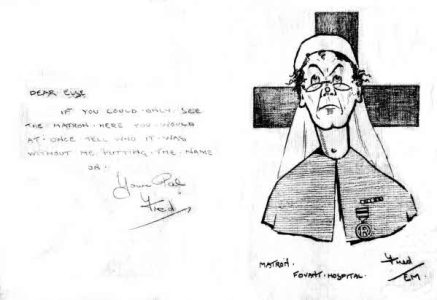 DEAR ELSE
IF YOU COULD ONLY SEE
THE MATRON HERE YOU WOULD
AT ONCE TELL WHO IT WAS
WITHOUT ME PUTTING THE NAME
ON.
Your Pal
Fred
MATRON.
FOVANT HOSPITAL.
Fred
EM.